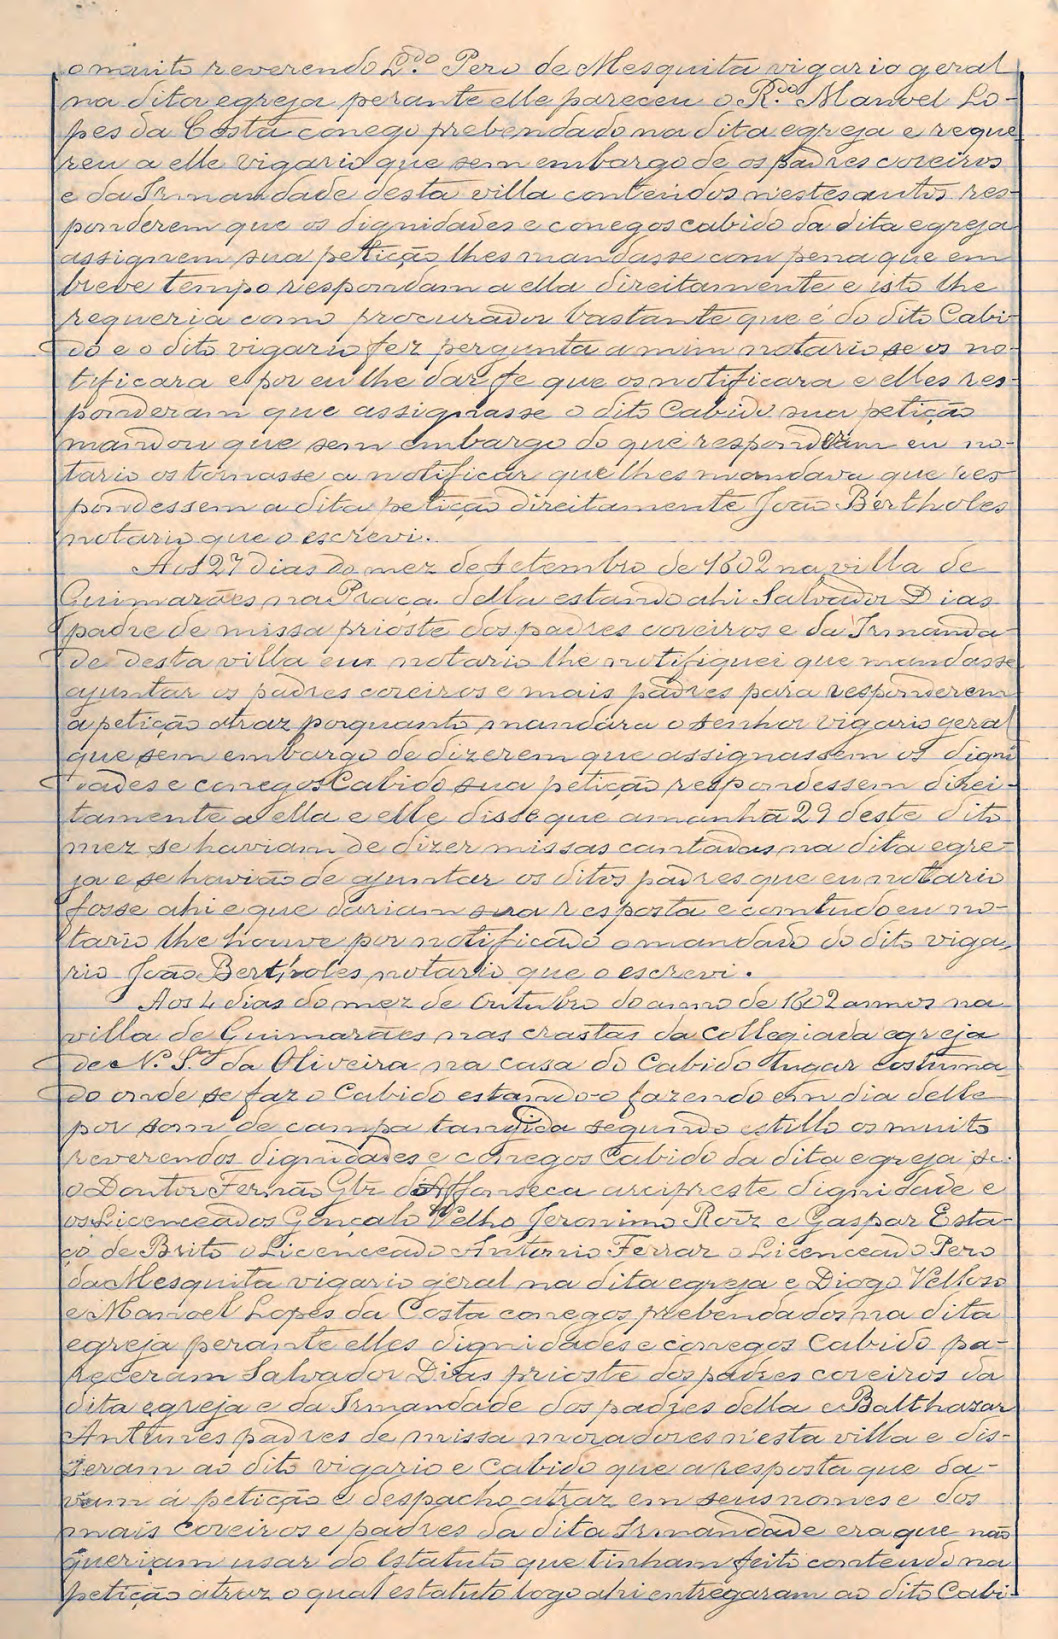 o muito reverendo L.do Pero de Mesquita vigario geral
na dita egreja perante elle pareceu o R.do Manoel Lo-
pes da Costa conego prebendado na dita egreja e reque
reu a elle vigario que sem embargo de os padres coreiros
e da Irmandade desta villa conteúdos n'estes autos res-
ponderem que os dignidades e conegos cabido da dita egreja
assignem sua petição lhes mandasse com pena que em
breve tempo respondam a ella direitamente e isto lhe
requeria como procurador bastante que é do dito Cabi-
do e o dito vigario fez pergunta a mim notario se os no-
tificara e por eu lhe dar fe que os notificara e elles res-
ponderam que assignasse o dito Cabido sua petição
mandou que sem embargo do que responderam eu no-
tario os tornasse a notificar que lhes mandava que res-
pondessem a dita petição direitamente João Bertholes
notario que o escrevi.
Aos 27 dias do mez de Setembro de 1602 na villa de
Guimarães na Praça della estando ahi Salvador Dias
padre de missa prioste dos padres coreiros e da Irmanda-
de desta villa eu notario lhe notifiquei que mandasse
ajuntar os padres coreiros e mais padres para responderem
a petição atraz porquanto mandara o senhor vigario geral
que sem embargo de dizerem que assignassem os digni
dades e conegos Cabido sua petição respondessem direi-
tamente a ella e elle disse que amanhã 29 deste dito
mez se haviam de dizer missas cantadas na dita egre-
ja e se havião de ajuntar os ditos padres que eu notario
fosse ahi e que dariam sua resposta e comtudo eu no-
tario lhe houve por notificado o mandado do dito viga-
rio João Bertholes notario que o escrevi.
Aos 4 dias do mez de Outubro do anno de 1602 annos na
villa de Guimarães nas crastas da collegiada egreja
de N. S.ra da Oliveira na casa do Cabido lugar costuma-
do onde se faz o Cabido estando-o fazendo em dia delle
por som de campa tangida segundo estillo os muito
reverendos dignidades e conegos Cabido da dita egreja sc.
o Doutor Fernão Glz d'Affonseca arcipreste dignidade e
os Licenceados Gonçalo Velho Jeronimo Roiz e Gaspar Esta-
ço de Brito o Licenceado Antonio Ferrar o Licenceado Pero
da Mesquita vigario geral na dita egreja e Diogo Velloso
e Manoel Lopes da Costa conegos prebendados na dita
egreja perante elles dignidades e conegos Cabido pa-
receram Salvador Dias prioste dos padres coreiros da
dita egreja e da Irmandade dos padres della e Balthazar
Antunes padres de missa moradores n'esta villa e dis-
seram ao dito vigario e Cabido que a resposta que da-
vam á petição e despacho atraz em seus nomes e dos
mais coreiros e padres da dita Irmandade era que não
queriam usar do Estatuto que tinham feito contendo na
petição atraz o qual estatuto logo ahi entregaram ao dito Cabi-